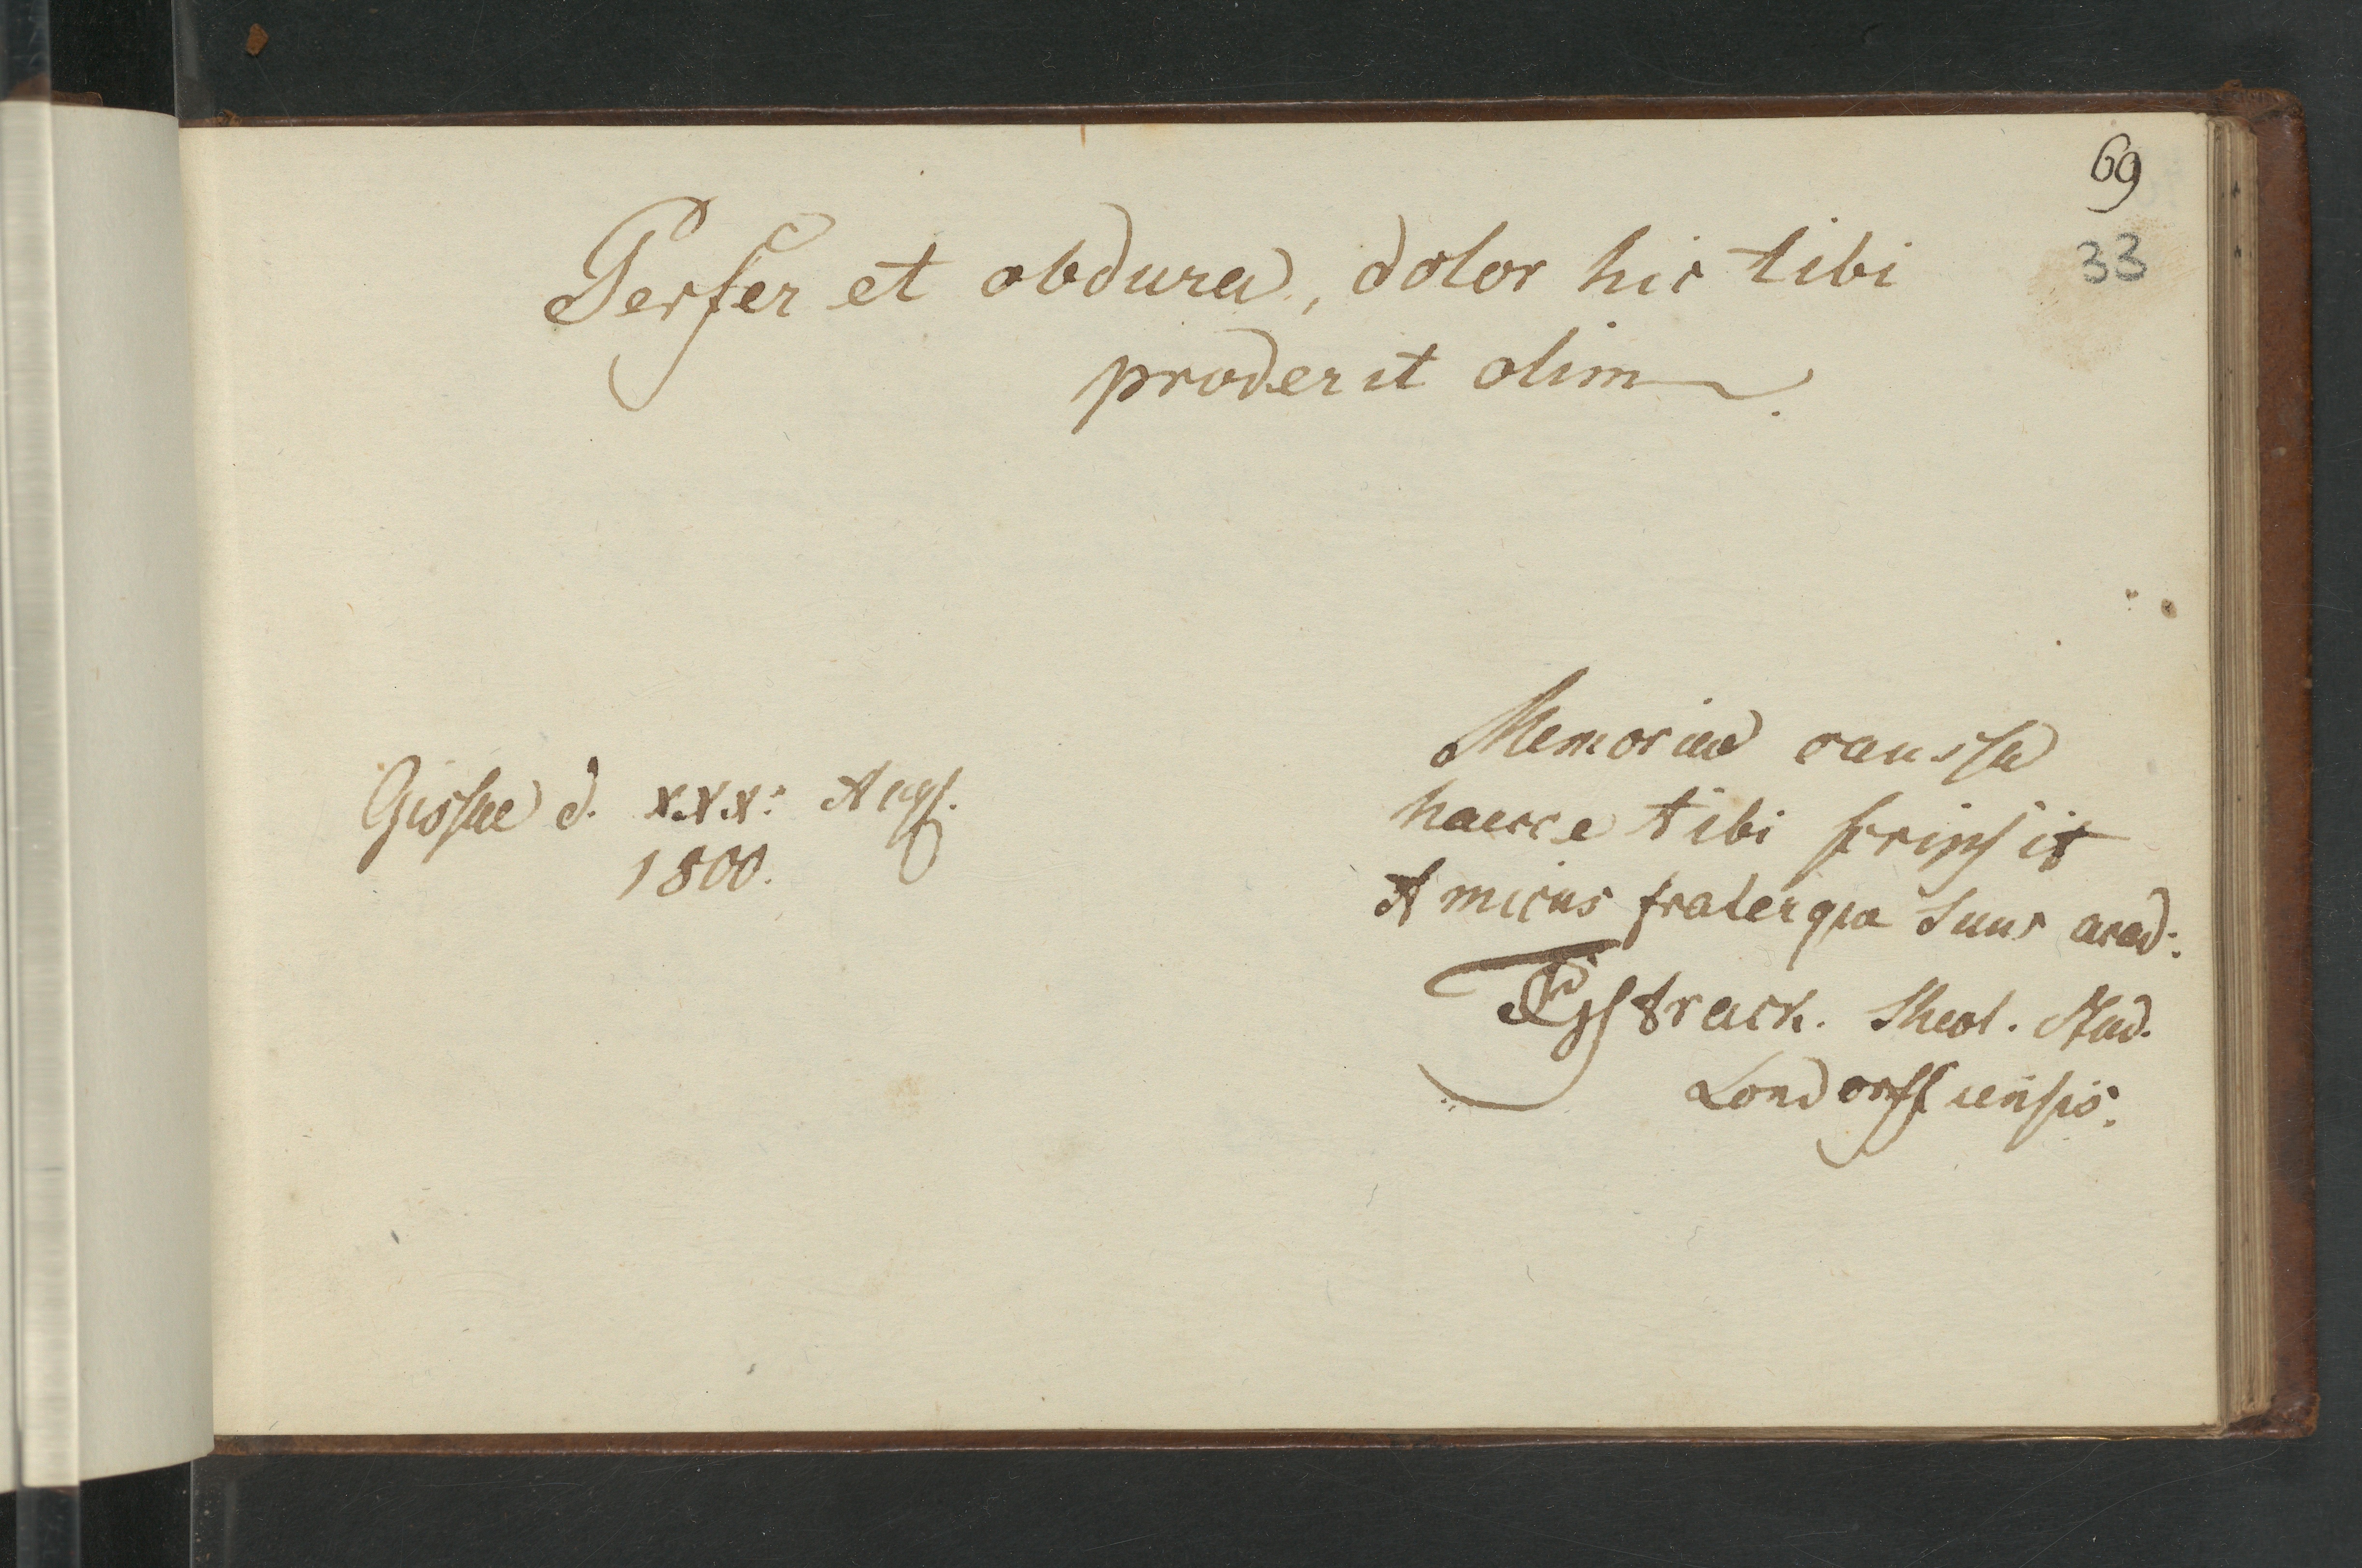 69
33
Perfer et obdura, dolor hic tibi
proderit olim.
Memoriae caussa
haecce tibi scripsit
Amicus fraterque tuus acad:
Strack. Theol. Stud.
Londorffiensis.
Gissae d. XXX: Aug.
1800.